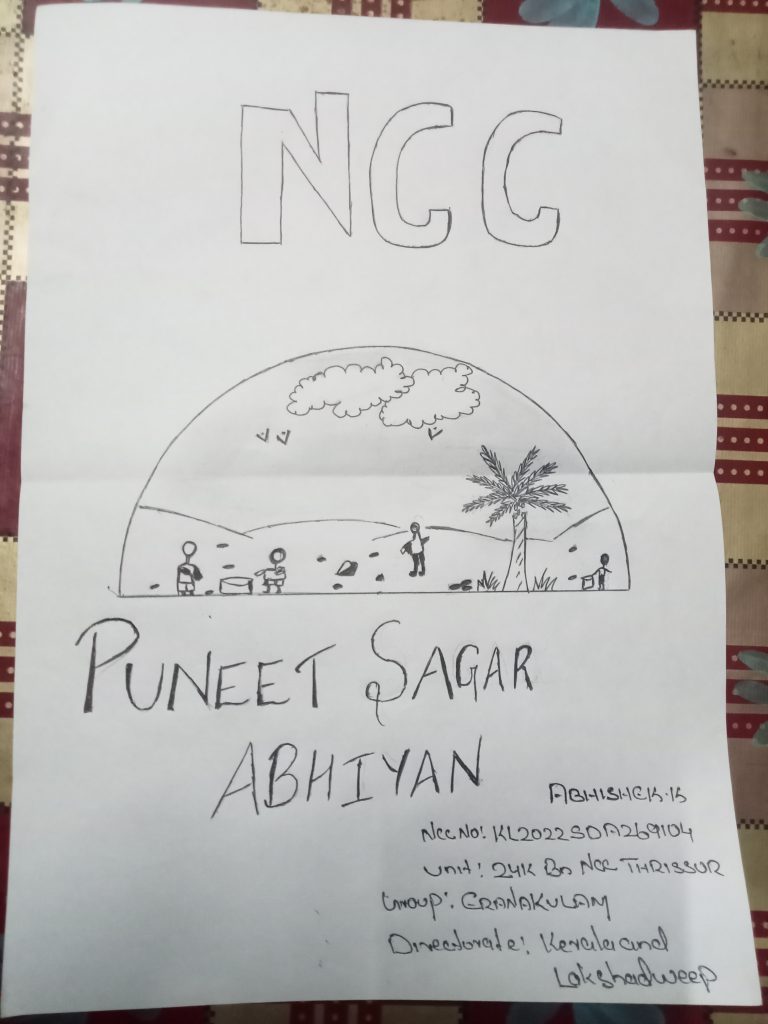 NCC
PUNEET SAGAR
ABHIYAN
ABHISHEK.K
NCC No: KL2022SDA269104
Unit: 24K Bn NCC THRISSUR
Group: ERANAKULAM
Directorate: Kerala and
Lakshadweep